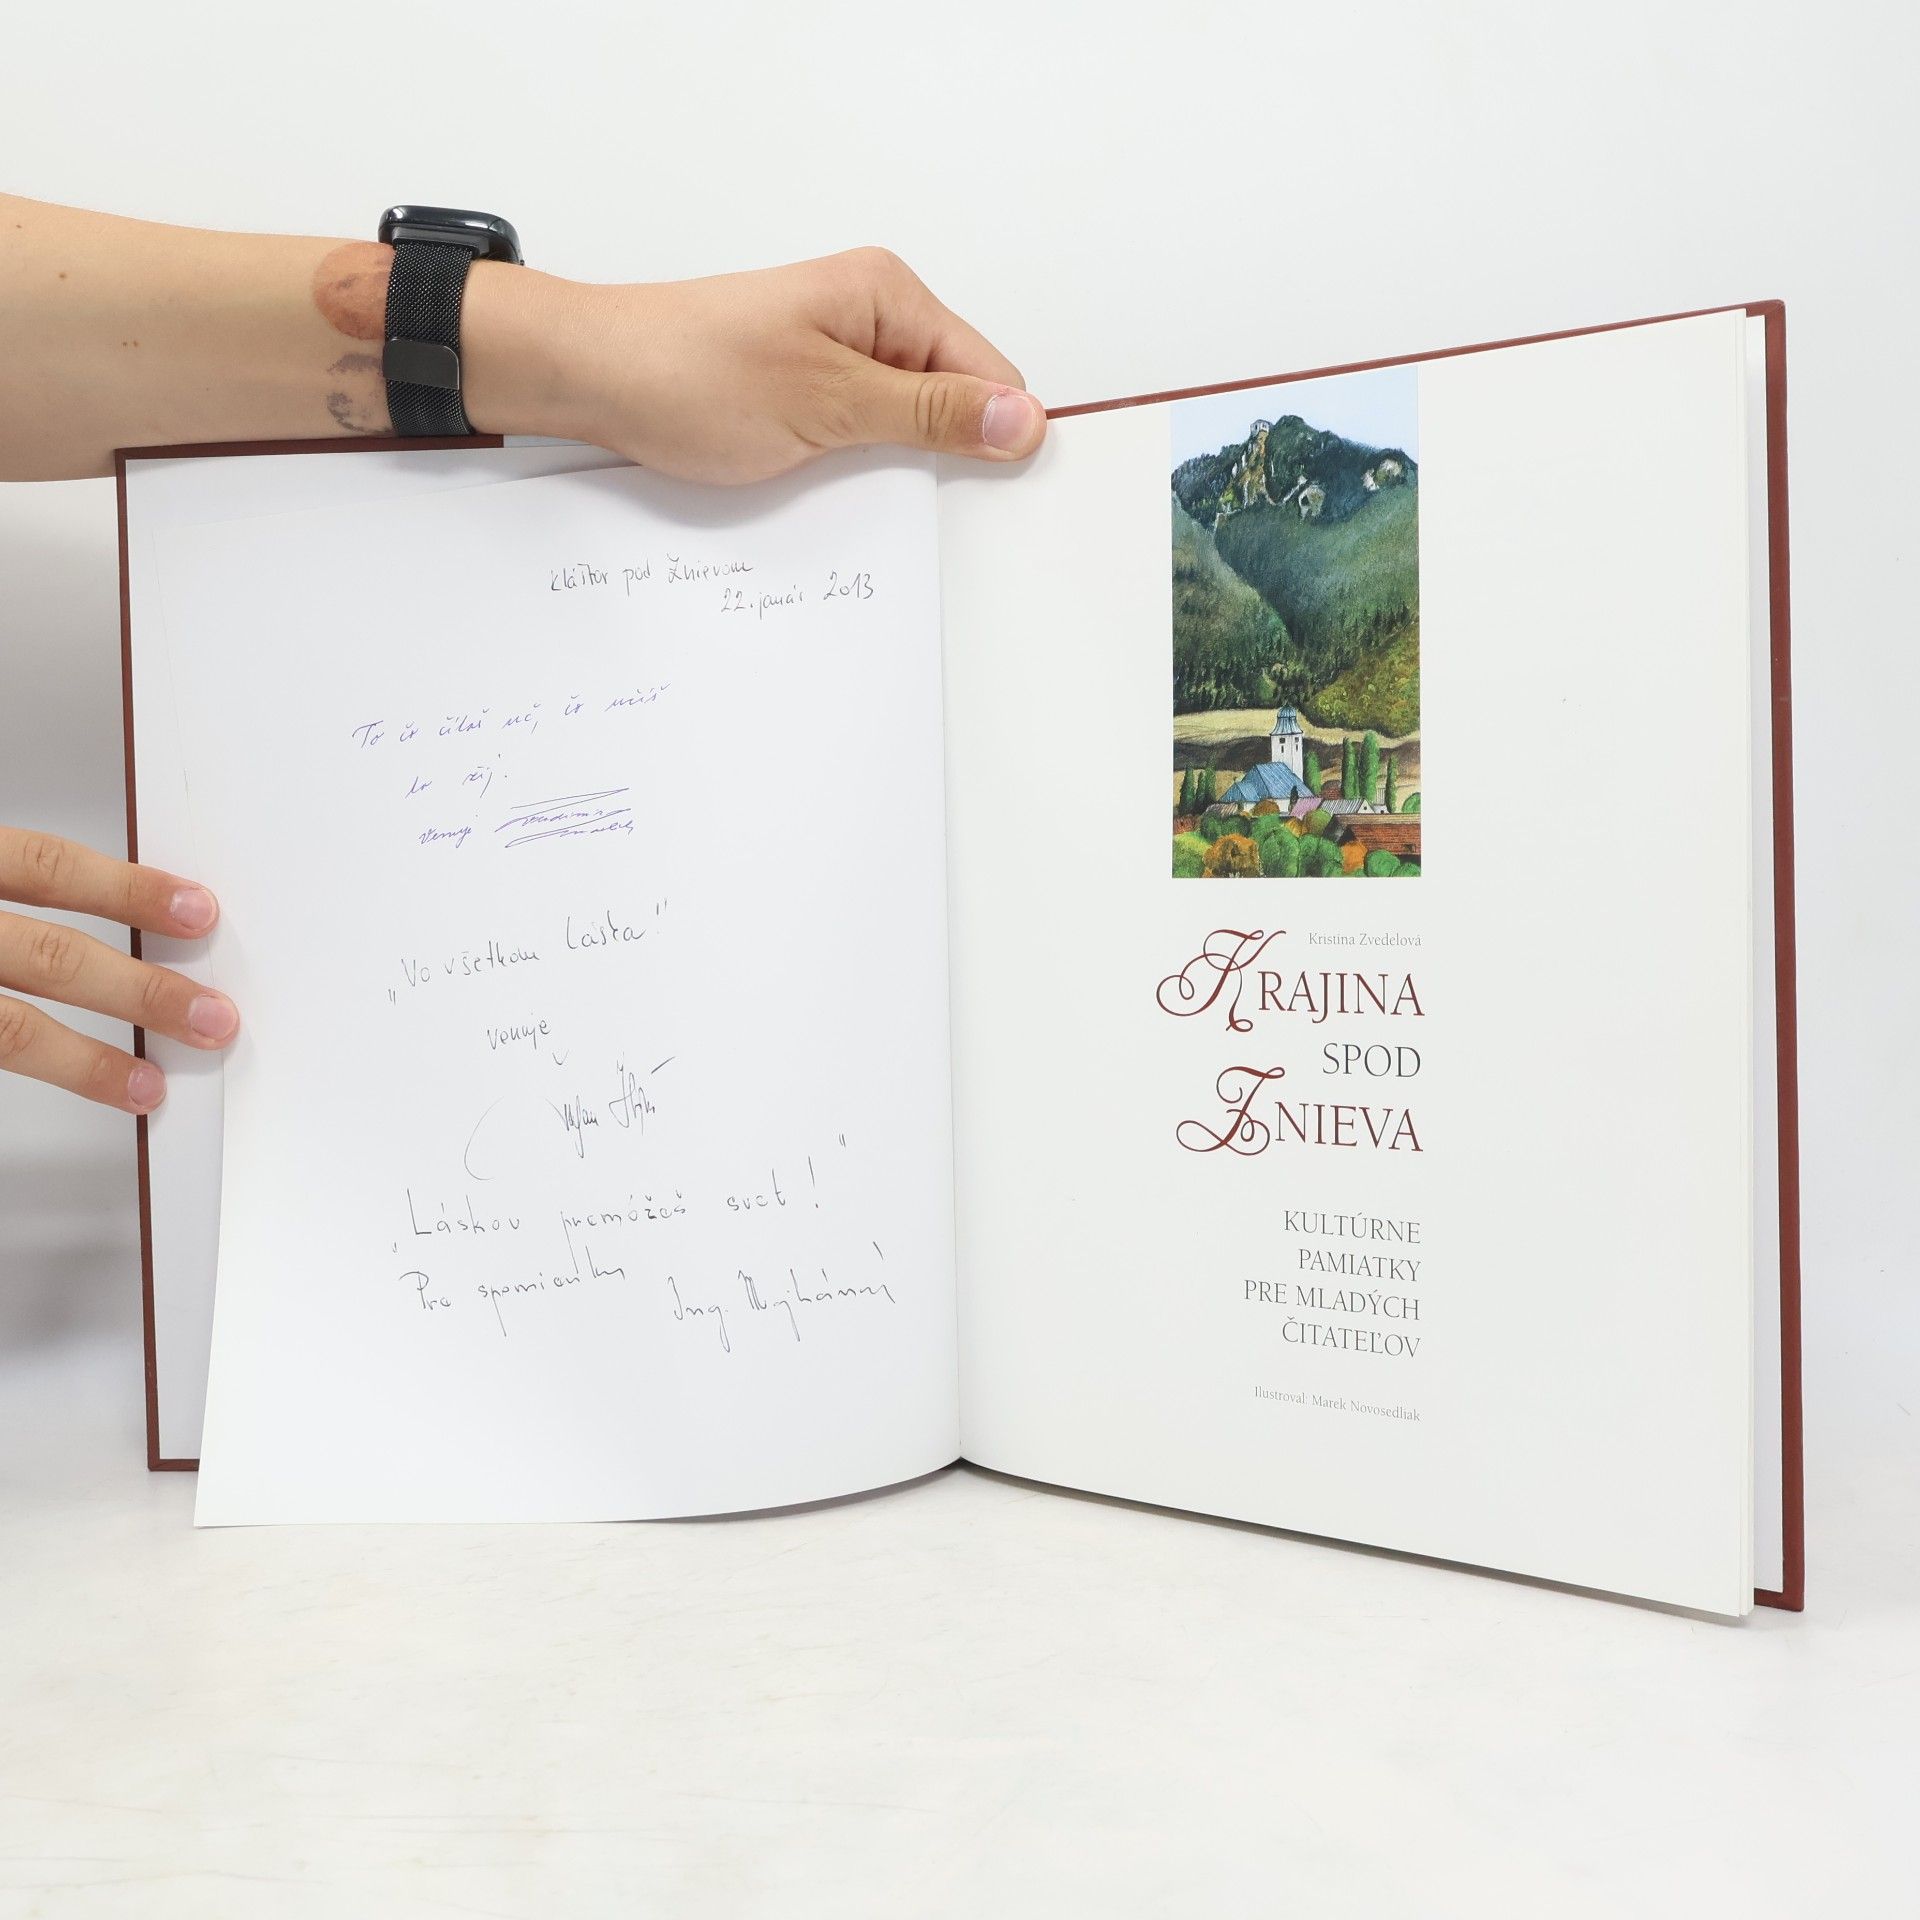 Kláštor pod Znievom
22. január 2013
To čo čítaš uč, čo učíš
to žij.
Venuje
„Vo všetkom láska!"
venuje
„Láskou premôžeš svet!"
Pre spomienku Ing. Majhánová
Kristína Zvedelová
KRAJINA
SPOD
ZNIEVA
KULTÚRNE
PAMIATKY
PRE MLADÝCH
ČITATEĽOV
Ilustroval: Marek Novosedliak